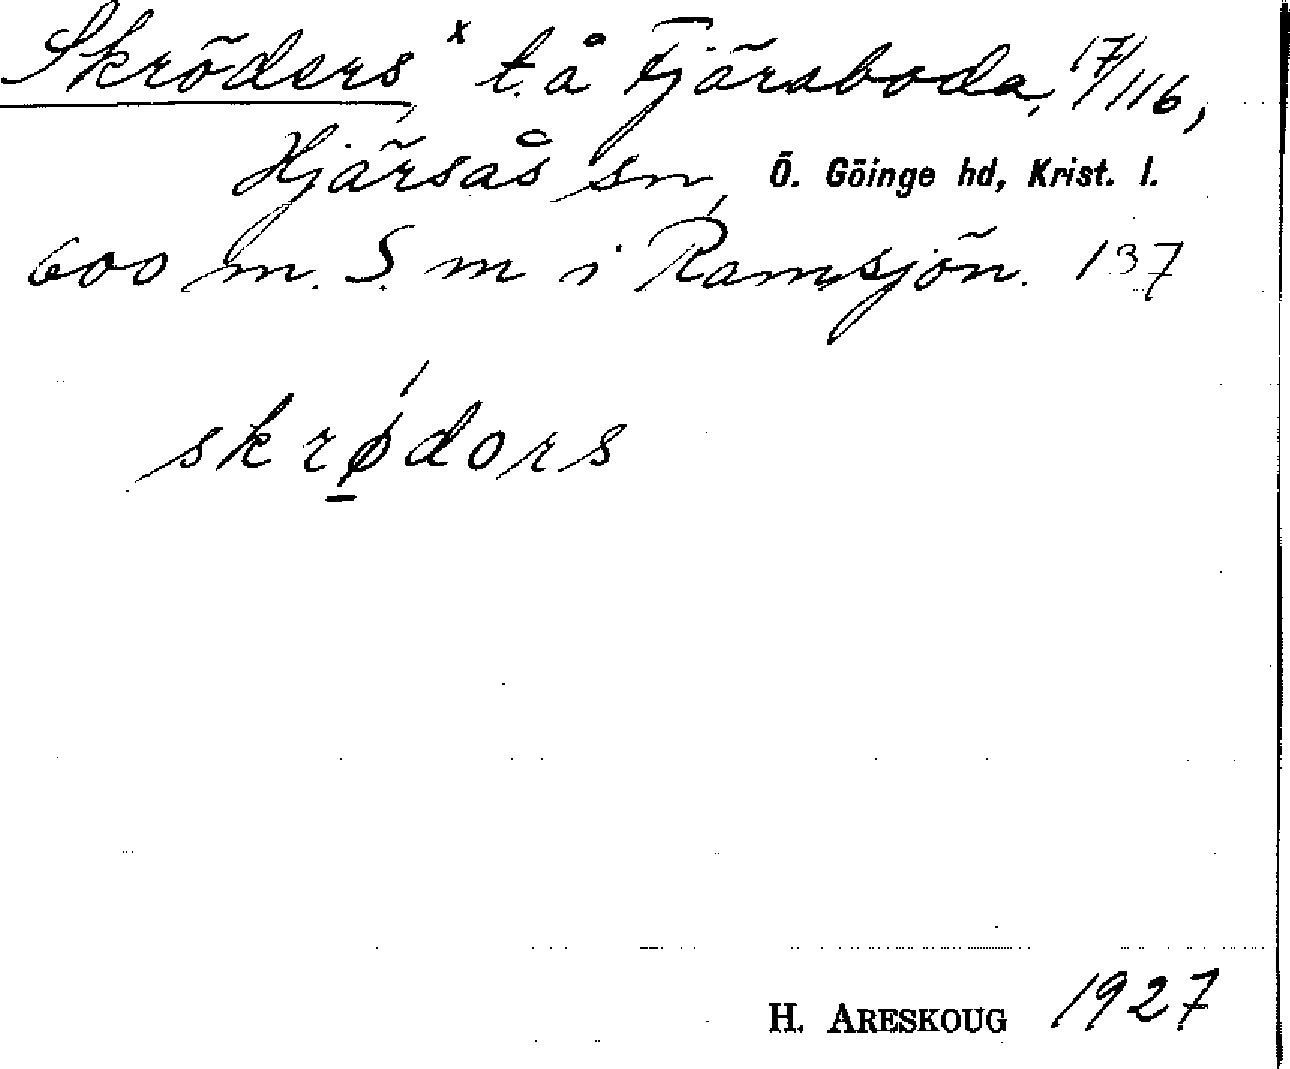 Skröders x t. å Fjäraboda, 17/116,
Hjärsås sn, Ö. Göinge hd, Krist. l.
600 m. S. m i Ramsjön. 137
skrǿdors
H. ARESKOUG 1927